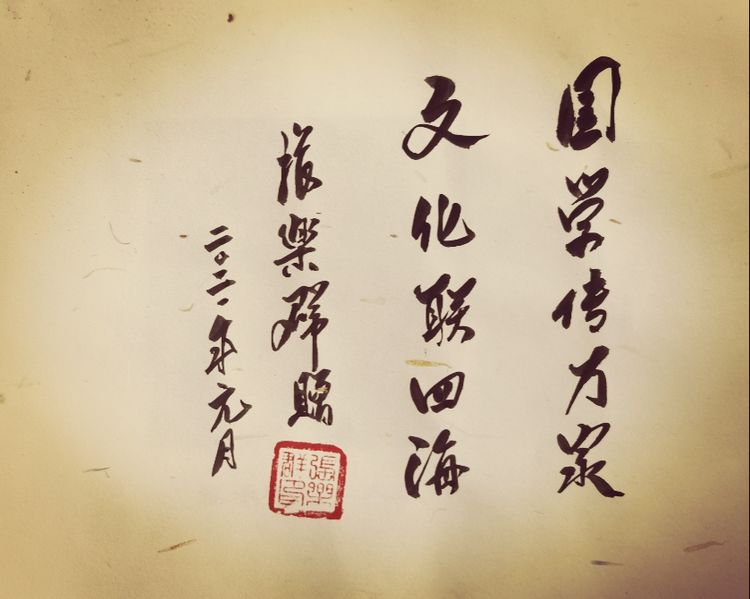 国学传万家
文化联四海
張樂群贈
二〇二一年元月
張樂群印